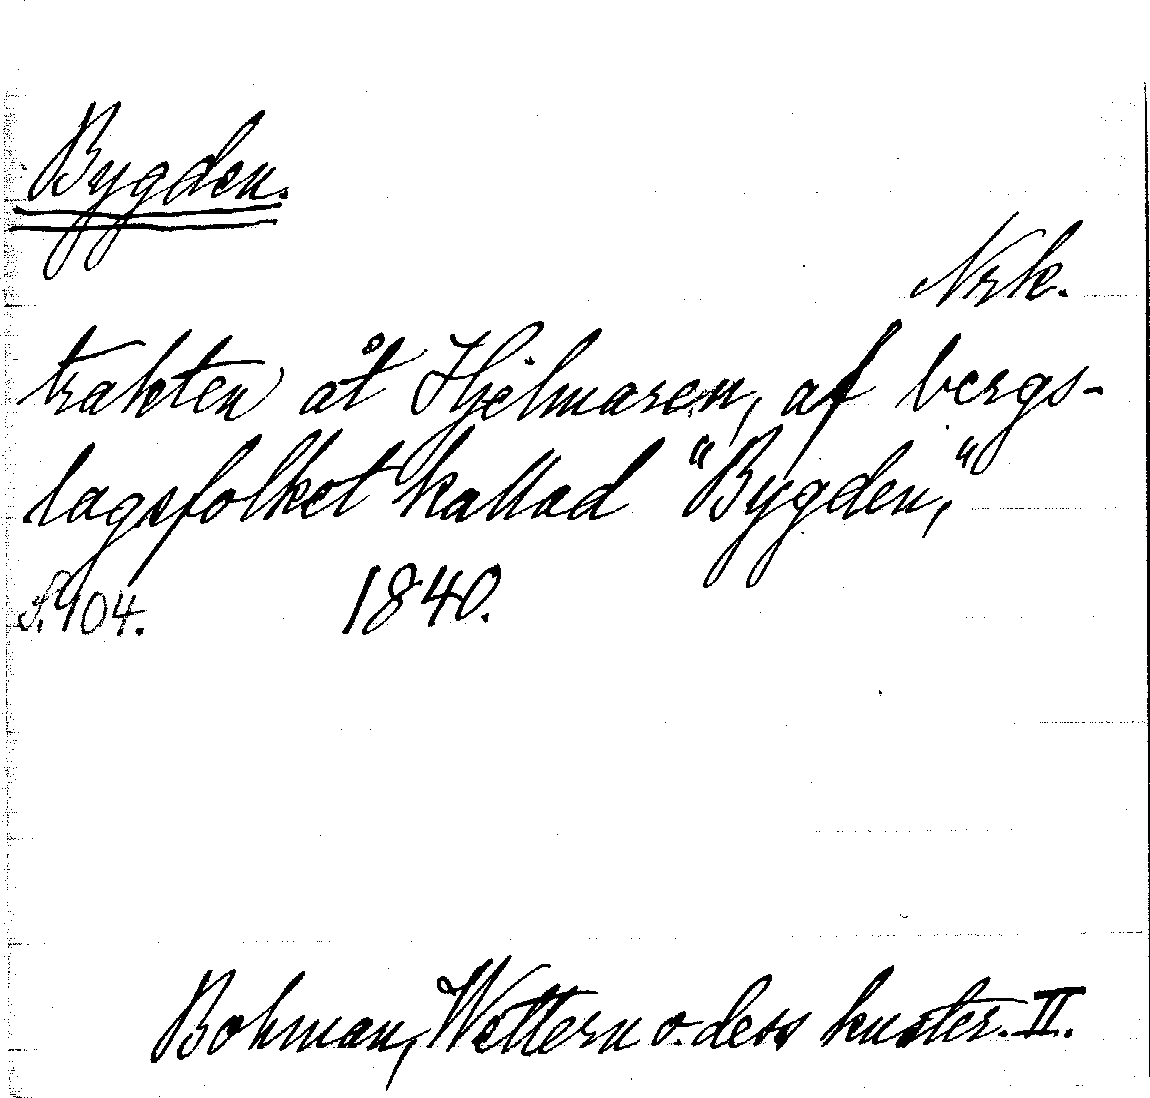 Bygden.
Nrk.
trakten åt Hjelmaren, af bergs-
lagsfolket kallad "Bygden,"
S. 104. 1840.
Bohman, Wettern o. dess kuster. II.